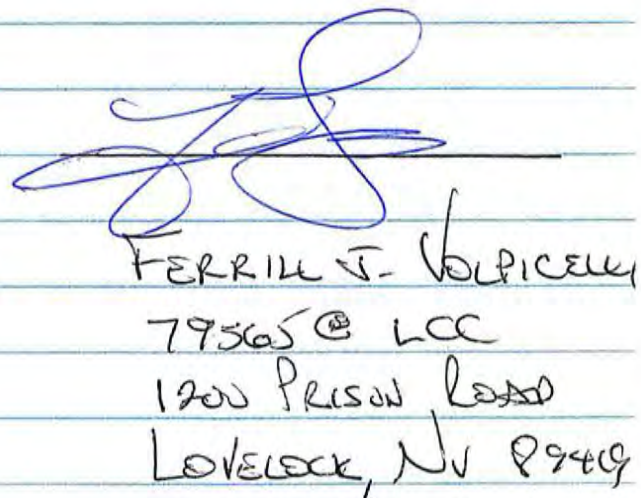 FERRILL J. VOLPICELLI
79565 @ LCC
1200 PRISON ROAD
LOVELOCK, NV 89419